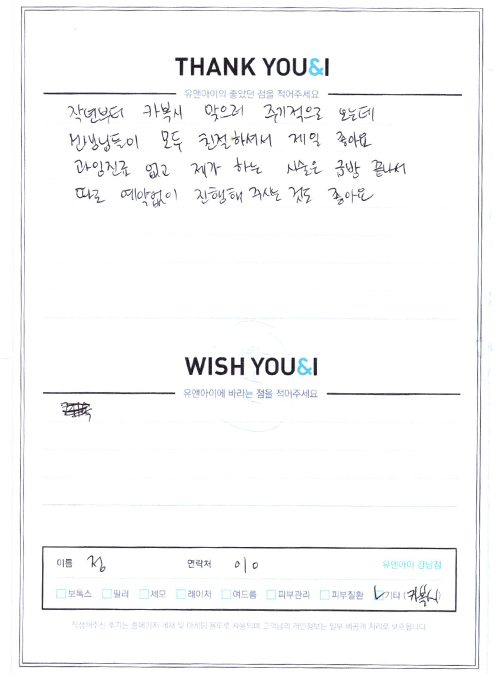 THANK YOU&I
유앤아이의 좋았던 점을 적어주세요
작년부터 카복시 맞으러 주기적으로 오는데
선생님들이 모두 친절하셔서 제일 좋아요
과잉진료 없고 제가 하는 시술은 금방 끝나서
따로 예약없이 진행해 주시는 것도 좋아요
WISH YOU&I
유앤아이에 바라는 점을 적어주세요
이름 정 연락처 010 유앤아이 강남점
보톡스 필러 제모 레이저 여드름 피부관리 피부질환 기타 (카복시)
작성해주신 후기는 홈페이지 게재 및 마케팅 용도로 사용되며 고객님의 개인정보는 일부 비공개 처리로 보호됩니다.